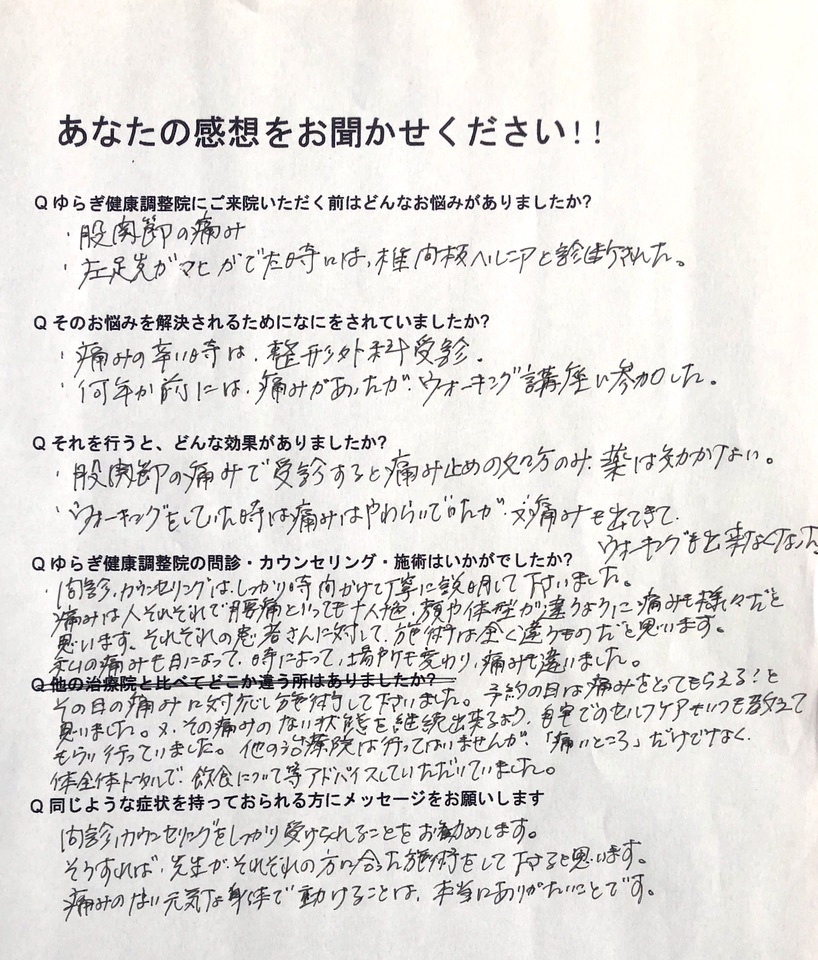 あなたの感想をお聞かせください!!
Q ゆらぎ健康調整院にご来院いただく前はどんなお悩みがありましたか?
・股関節の痛み
・左足先がマヒがでた時には、椎間板ヘルニアと診断された。
Q そのお悩みを解決されるためになにをされていましたか?
・痛みの辛い時は、整形外科受診。
・何年か前には、痛みがあったが、ウォーキング講座に参加した。
Q それを行うと、どんな効果がありましたか?
・股関節の痛みで受診すると痛み止めの処方のみ、薬は効かない。
・ウォーキングをしていた時は痛みはやわらいでいたが、又痛みも出てきて、
ウォーキングも出来なくなった
Q ゆらぎ健康調整院の問診・カウンセリング・施術はいかがでしたか?
・問診、カウンセリングは、しっかり時間かけて丁寧に説明して下さいました。
痛みは人それぞれで腰痛といっても十人十色、顔や体型が違うように痛みも様々だと
思います。それぞれの患者さんに対して、施術は全く違うものだと思います。
私の痛みも日によって、時によって、場所も変わり、痛みも違いました。
Q 他の治療院と比べてどこか違う所はありましたか?
その日の痛みに対応し施術して下さいました。予約の日は痛みをとってもらえる!と
思いました。又、その痛みのない状態を継続出来るよう、自宅でのセルフケアもいつも教えて
もらい行っていました。他の治療院は行ってはいませんが、「痛いところ」だけでなく、
体全体トータルで、飲食について等アドバイスしていただいていました。
Q 同じような症状を持っておられる方にメッセージをお願いします
問診、カウンセリングをしっかり受けられることをお勧めします。
そうすれば、先生が、それぞれの方に合った施術をして下さると思います。
痛みのない元気な身体で動けることは、本当にありがたいことです。